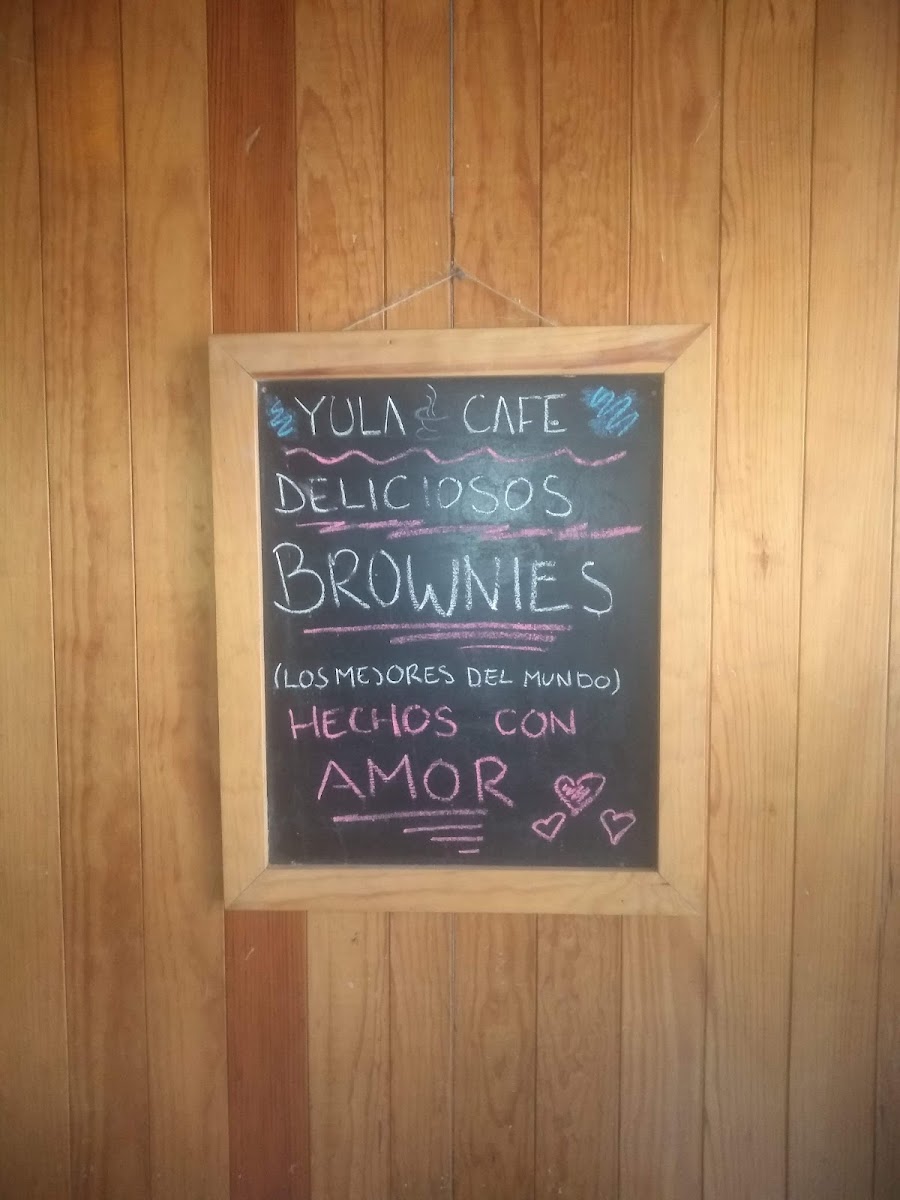 YULA CAFE
DELICIOSOS
BROWNIES
(LOS MEJORES DEL MUNDO)
HECHOS CON
AMOR